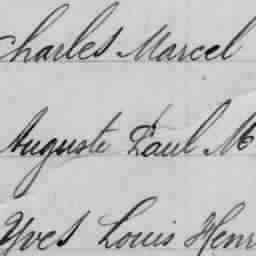 Charles Marcel
Auguste Paul M
Yves Louis Henri